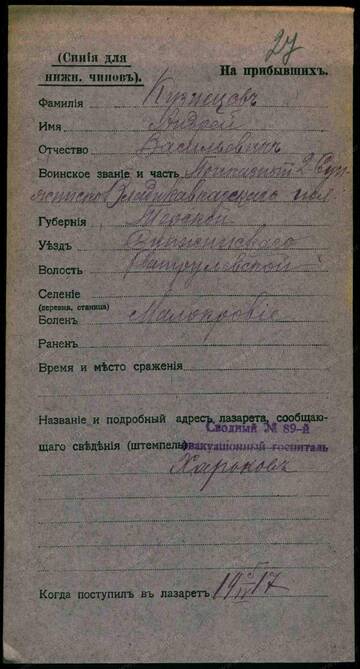 27
(Синія для
нижн. чиновъ).
На прибывшихъ.
Фамилія Кузнецовъ
Имя Андрей
Отчество Васильевичъ
Воинское званіе и часть 2
Владикавказскаго пол
Губернія
Уѣздъ
Волость
Селеніе
(деревня, станица)
Боленъ Малокровіе
Раненъ
Время и мѣсто сраженія
Названіе и подробный адресъ лазарета, сообщаю-
щаго свѣдѣнія (штемпель)
Сводный № 89-й
эвакуаціонный госпиталь
Харьковъ
Когда поступилъ въ лазаретъ 19 17